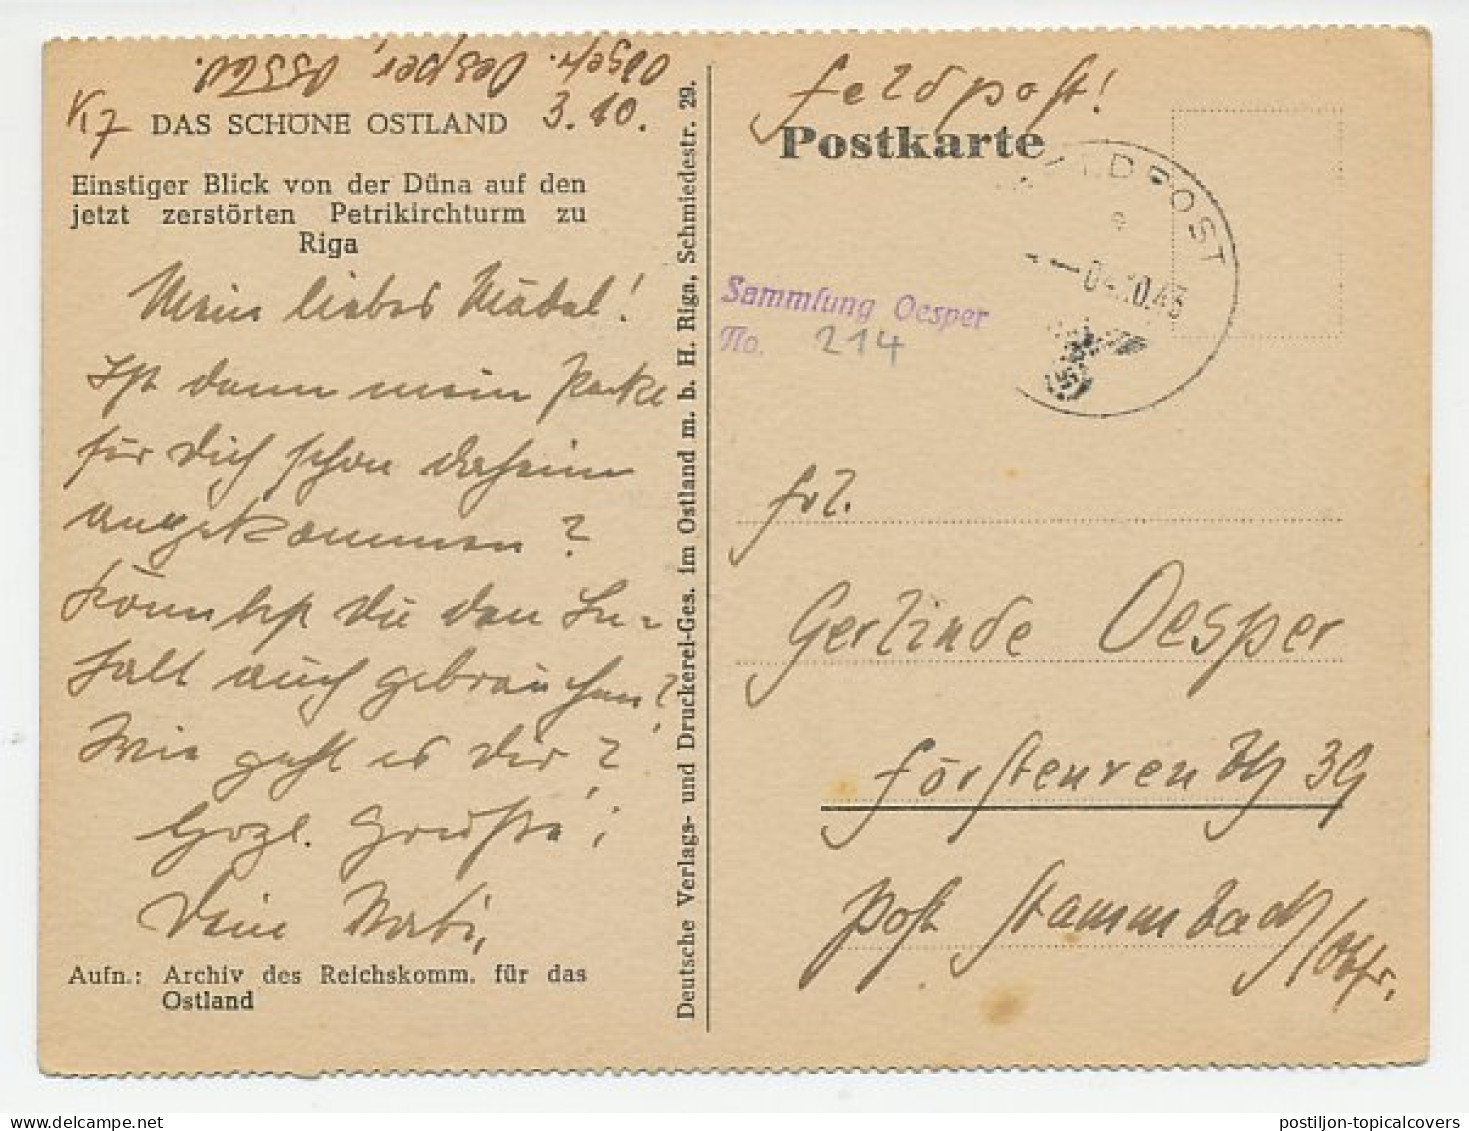 Obgefr. Oesper, 05560.
K17
3. 10.
DAS SCHÖNE OSTLAND
Einstiger Blick von der Düna auf den
jetzt zerstörten Petrikirchturm zu
Riga
Mein liebes Mädel!
Ist denn mein Paket
für Dich schon daheim
angekommen?
Könntest Du den In-
halt auch gebrauchen?
Wie geht es Dir?
Herzl. Grüsse;
Dein Vati,
Aufn.: Archiv des Reichskomm. für das
Ostland
Deutsche Verlags- und Druckerei-Ges. im Ostland m. b. H. Riga, Schmiedestr. 29.
Feldpost!
Postkarte
FELDPOST
-04.10.43
Sammlung Oesper
No. 214
Frl.
Gerlinde Oesper
Förstenreuth 39
Post Stammbach/Obfr.
postiljon-topicalcovers